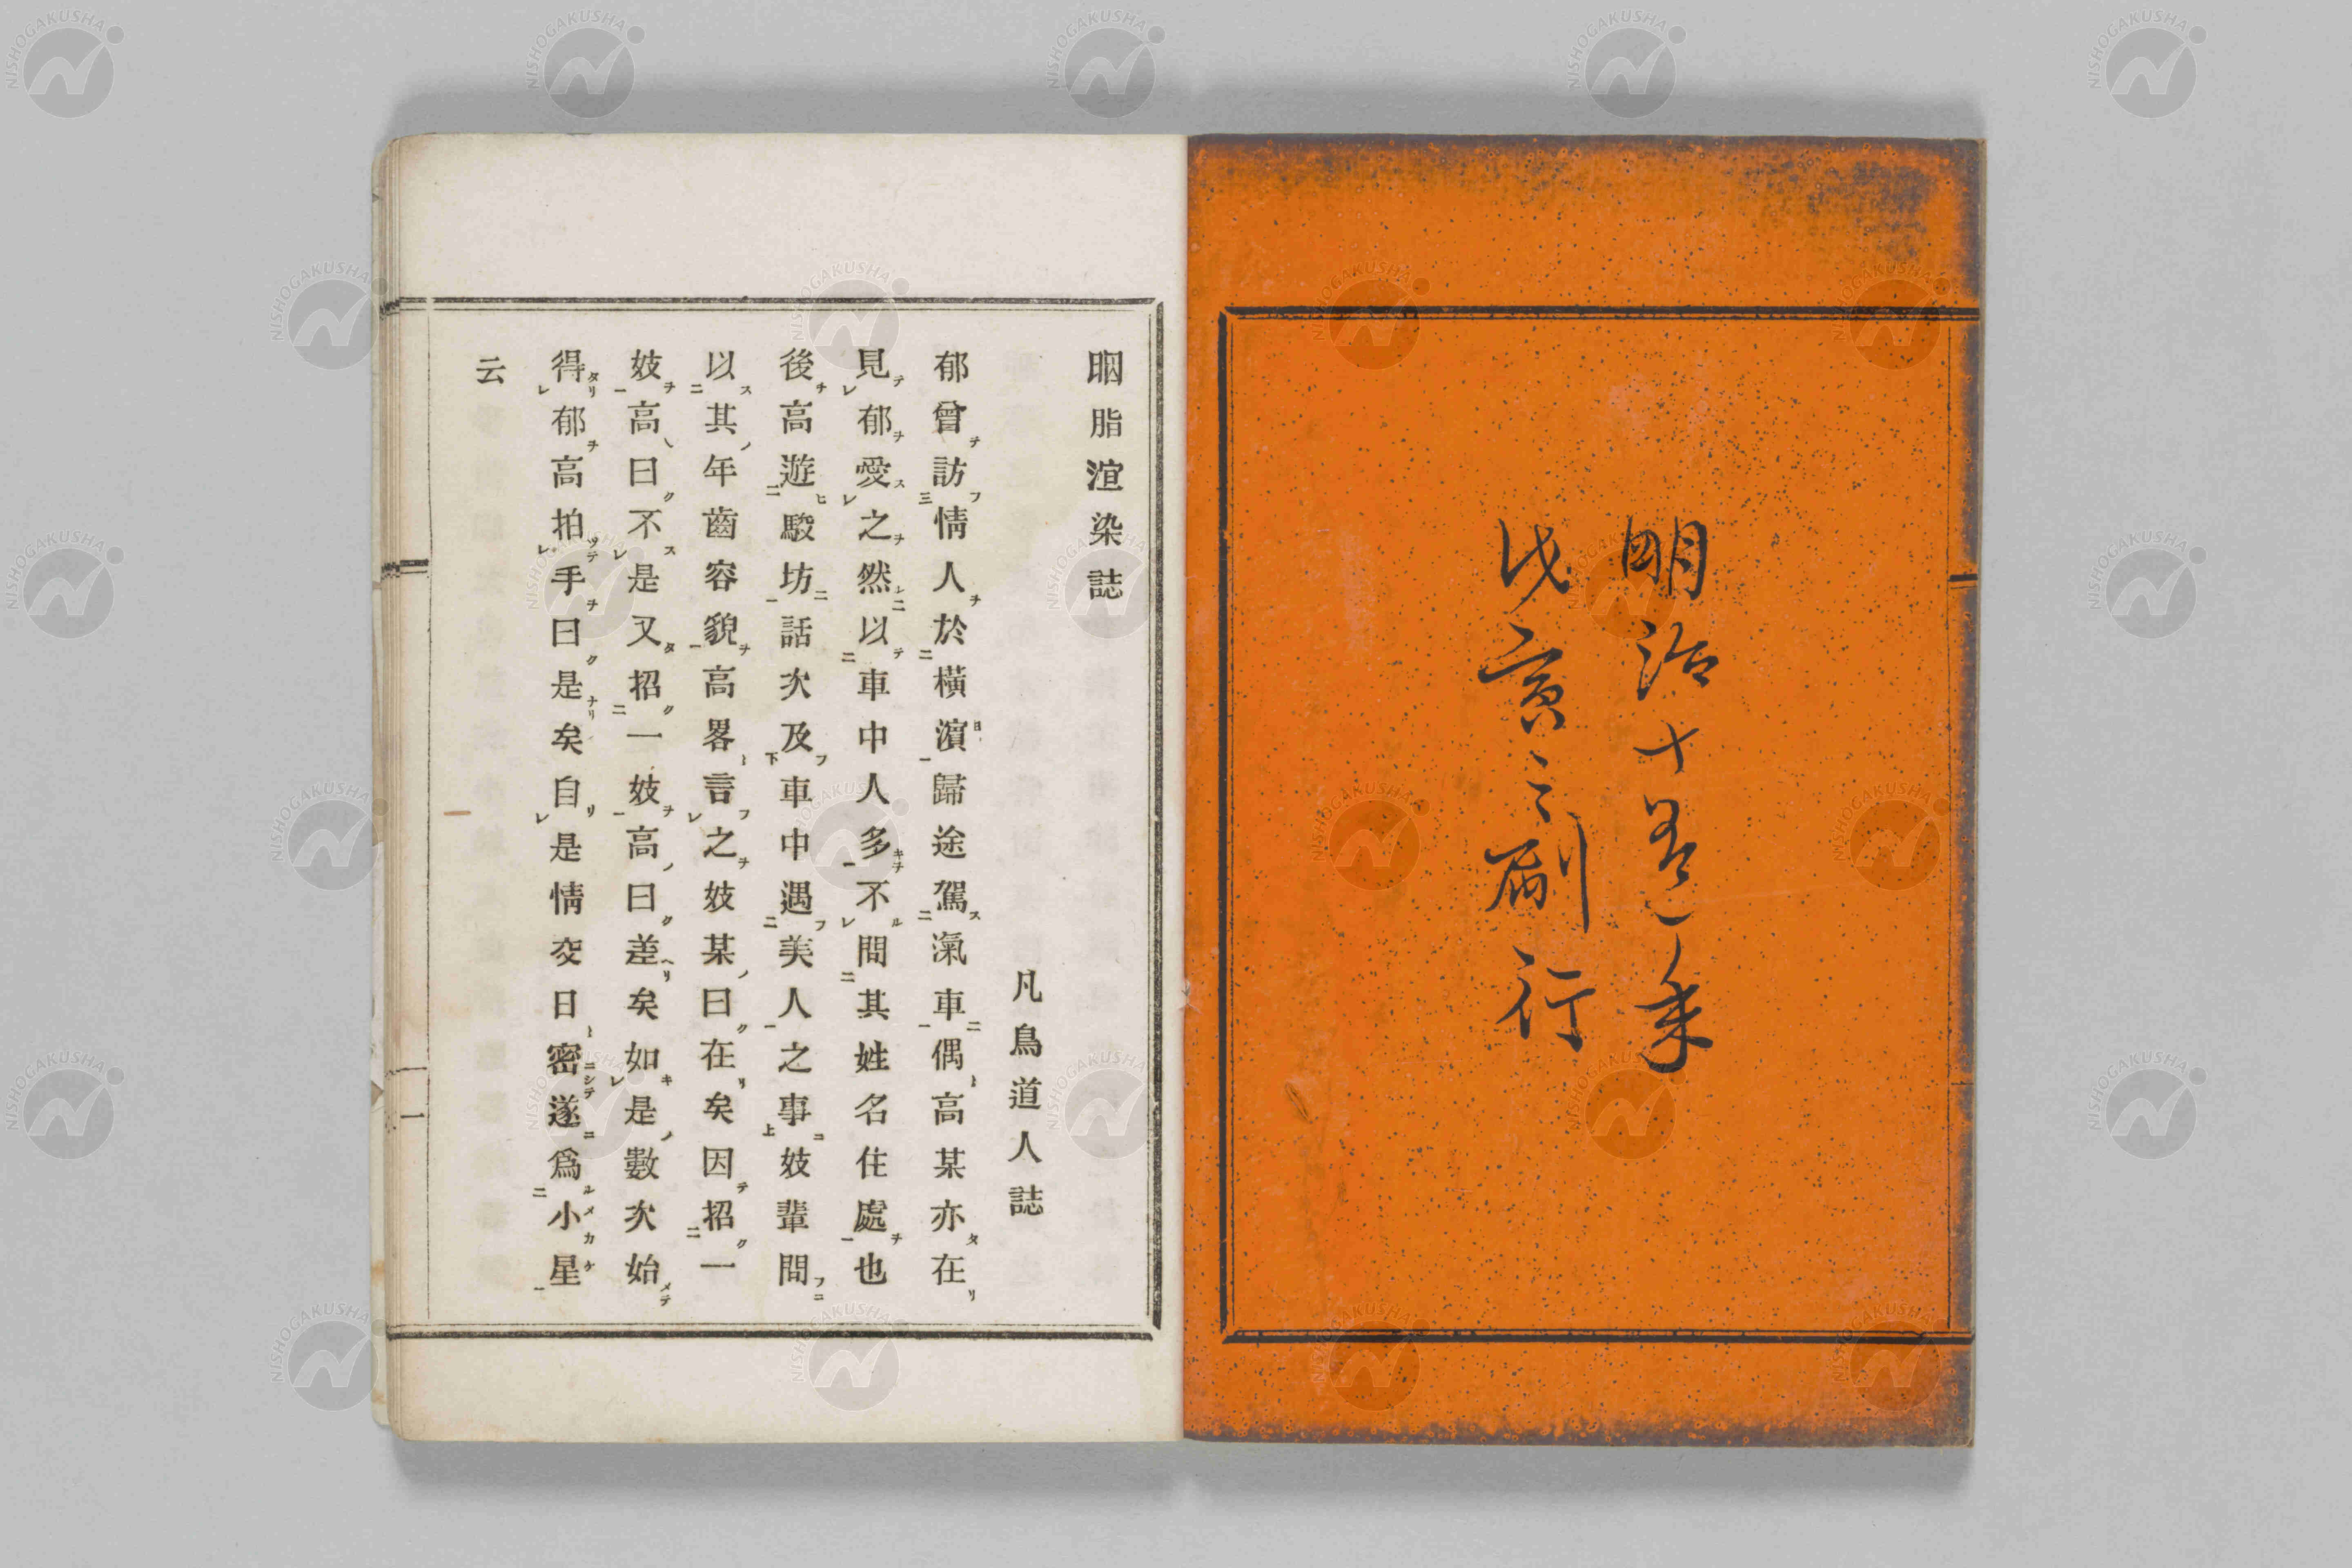 明治十有一年
戊寅之刷行
胭脂渲染誌
凡鳥道人誌
郁曾訪情人於橫濱歸途駕滊車偶高某亦在
見郁愛之然以車中人多不問其姓名住處也
後高遊駿坊話次及車中遇美人之事妓輩問
以其年齒容貌高畧言之妓某曰在矣因招一
妓高曰不是又招一妓高曰差矣如是數次始
得郁高拍手曰是矣自是情交日密遂爲小星
云
一
NISHOGAKUSHA